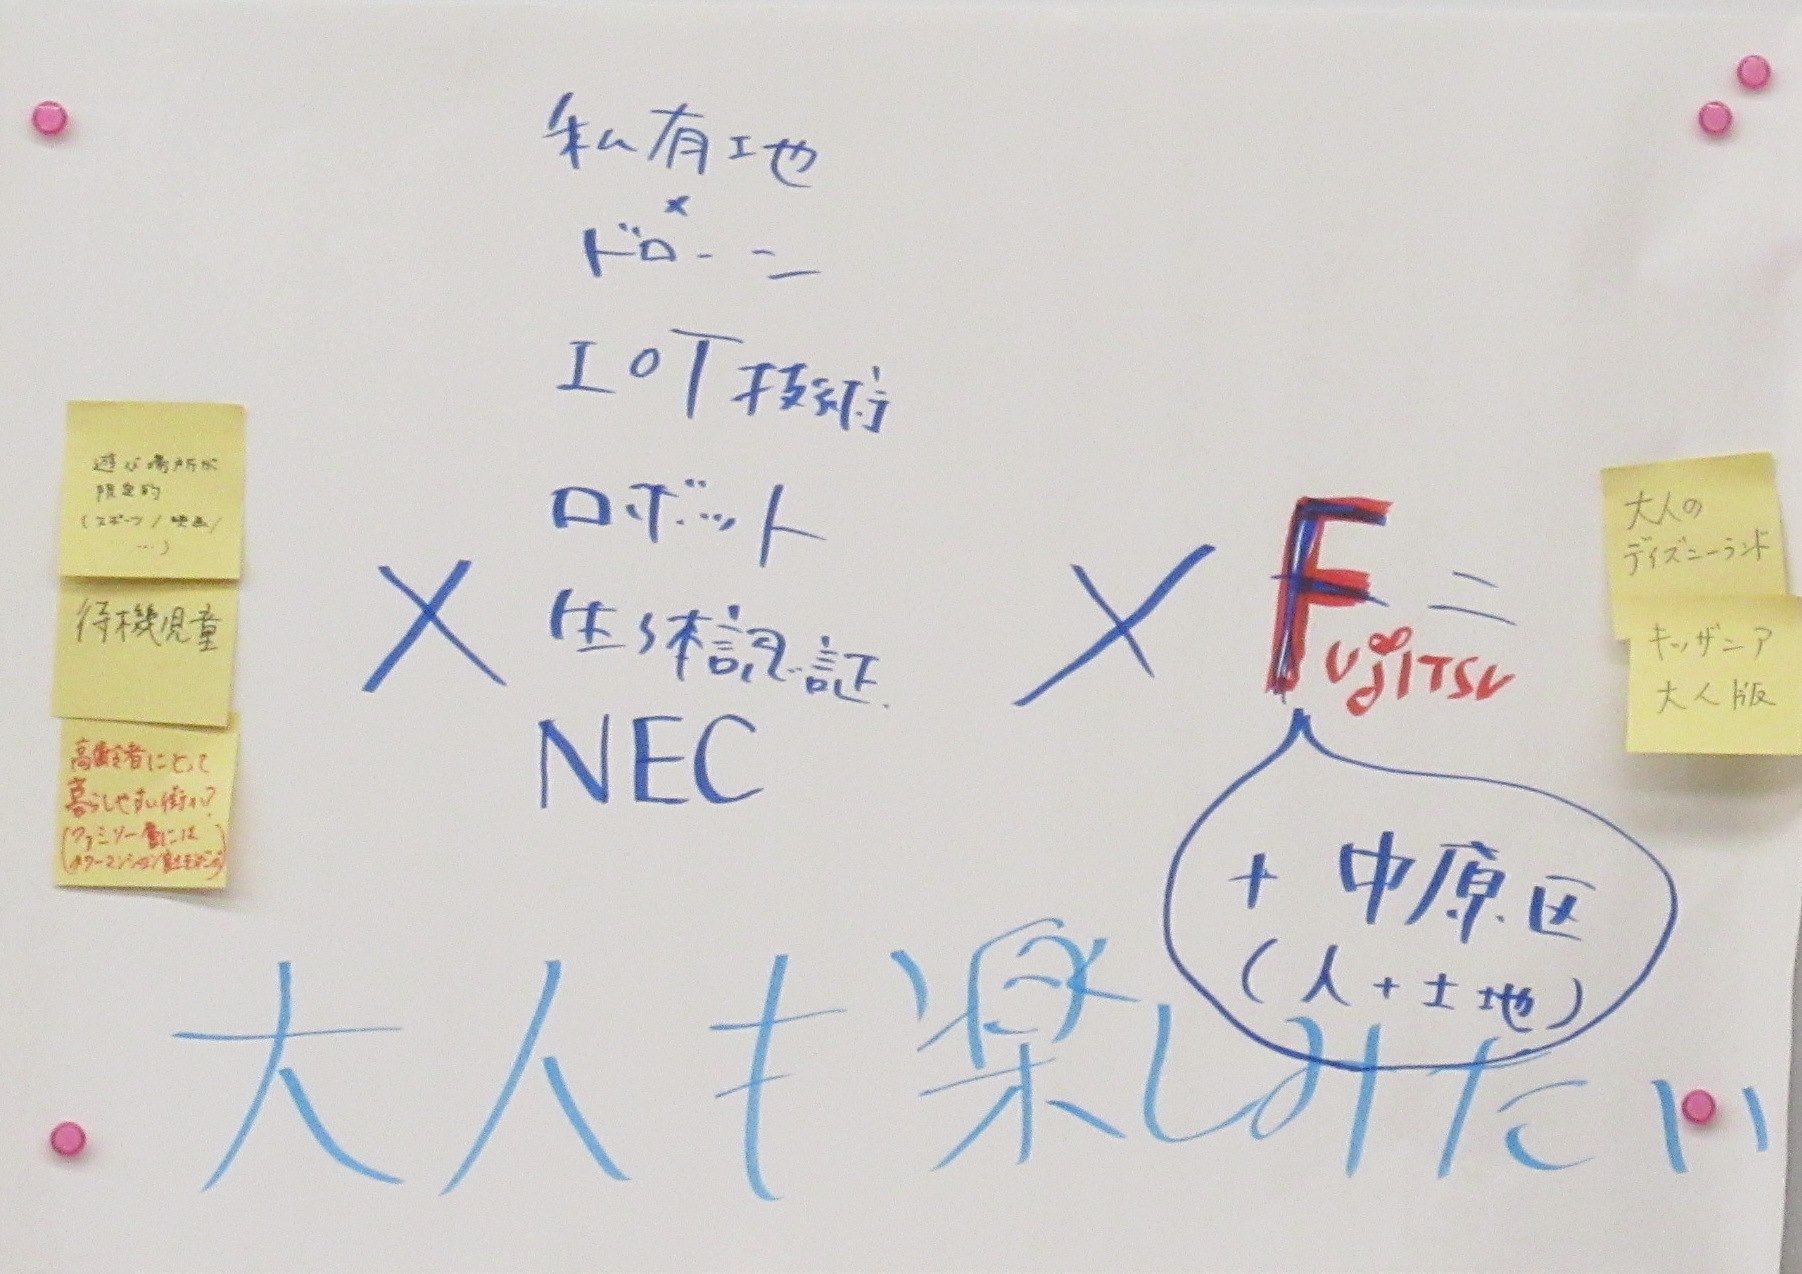 遊び場所が
限定的
(スポーツ/映画/
…)
待機児童
高齢者にとって
暮らしやすい街か?
(ファミリー層には
×
私有地
×
ドローン
IOT技術
ロボット
生体認証
NEC
×
FUJITSU
=
+ 中原区
(人+土地)
大人の
ディズニーランド
キッザニア
大人版
大人も楽しみたい